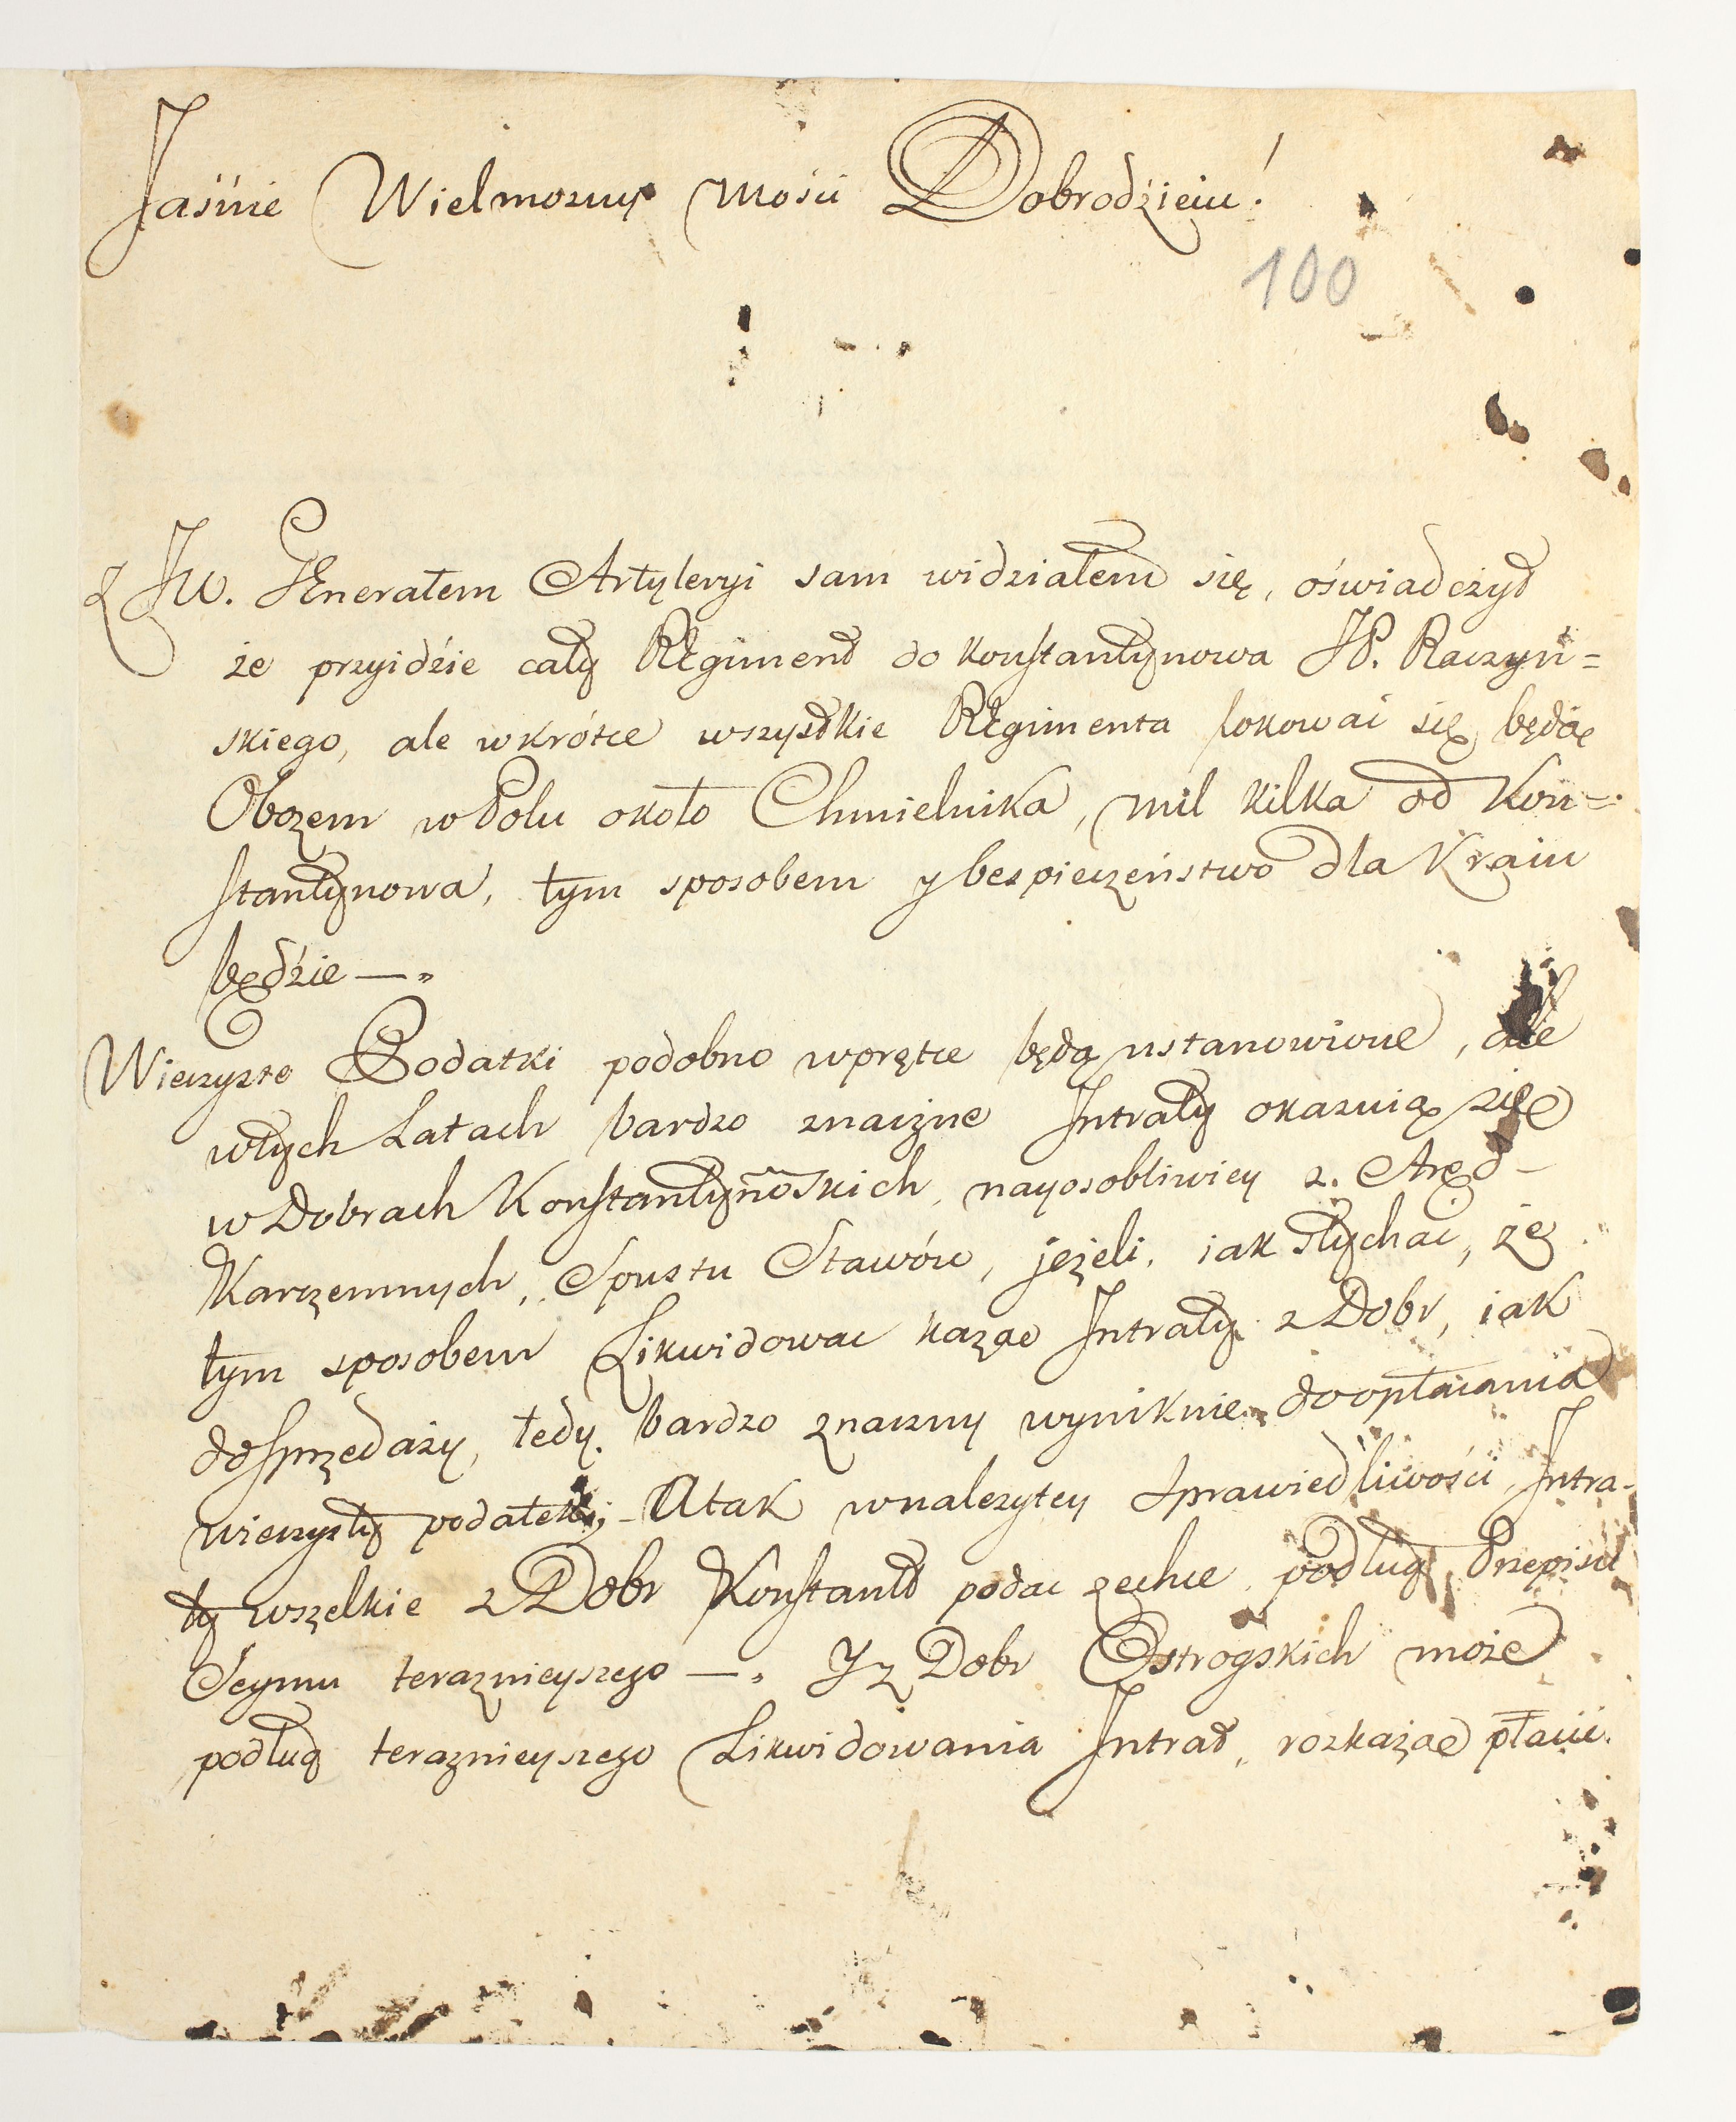 Jaśnie Wielmożny Mości Dobrodzieiu!
100
Z JW. Generałem Artyleryi sam widziałem się, oświadczył
że przyidźie cały Regiment do Konstantynowa JP. Raczyń=
skiego, ale wkrótce wszystkie Regimenta lokować się będą
Obozem w Polu około Chmielnika, mil kilka od Kon=
stantynowa, tym sposobem y bespieczeństwo dla Kraiu
będźie —"
Wieczyste Podatki podobno wprętce będą ustanowione, ale
wtych Latach bardzo znaczne Intraty okazuią się
w Dobrach Konstantynowskich, nayosobliwiey z. Aręd-
Karczemnych, Spustu Stawów, jeżeli, iak słychać, że
tym sposobem Likwidować każąc Intraty z Dobr, iak
do sprzedaży, tedy bardzo znaczny wyniknie do opłacania
wieczysty podatek; - A tak w należytey Sprawiedliwości Intra-
ty wszelkie z Dobr Konstant podać zechce podług Przepisu
Seymu teraznieyszego —" Y z Dobr Ostrogskich może
podług teraznieyszego Likwidowania Intrat, rozkażąc płacić.